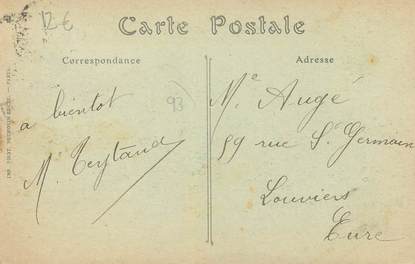 12€
Carte Postale
Correspondance
Adresse
93
à bientôt
M. Teytaud
Me Augé
59 rue St Germain
Louviers
Eure